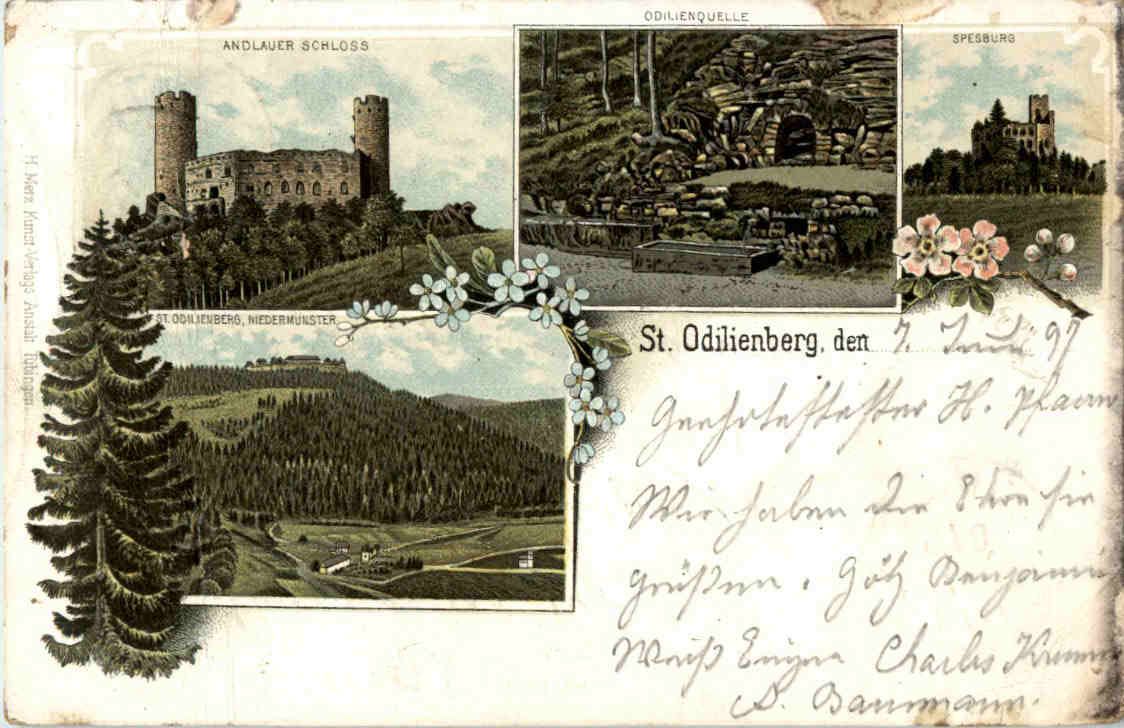 ODILIENQUELLE
ANDLAUER SCHLOSS
SPESBURG
H. Merz Kunst-Verlags Anstalt Tübingen.
ST. ODILIENBERG, NIEDERMÜNSTER
St. Odilienberg, den 7. Juni 97
Geehrtester H. Pfarrer
Wir haben die Ehre sie
grüßen. Götz Benjamin
Weiß Eugen Charles
A. Baumann.